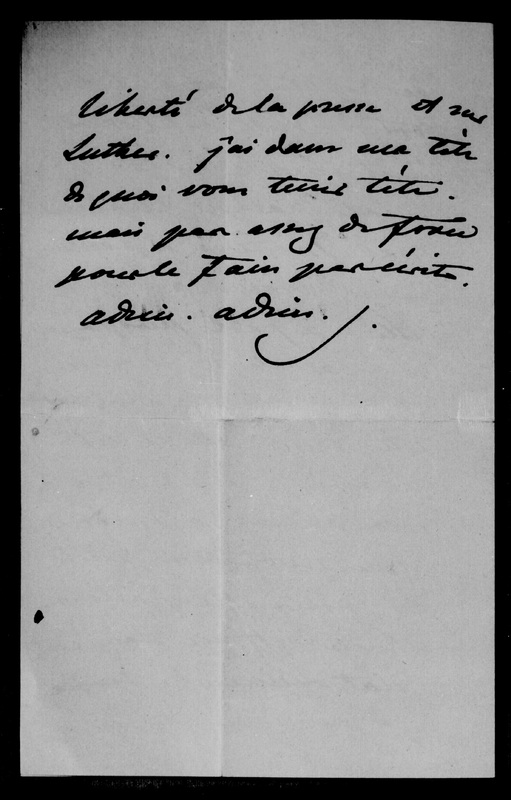 liberté de la presse et sur
Luther. j'ai dans ma tête
de quoi vous tenir tête.
mais pas assez de force
pour le faire par écrit.
adieu. adieu.